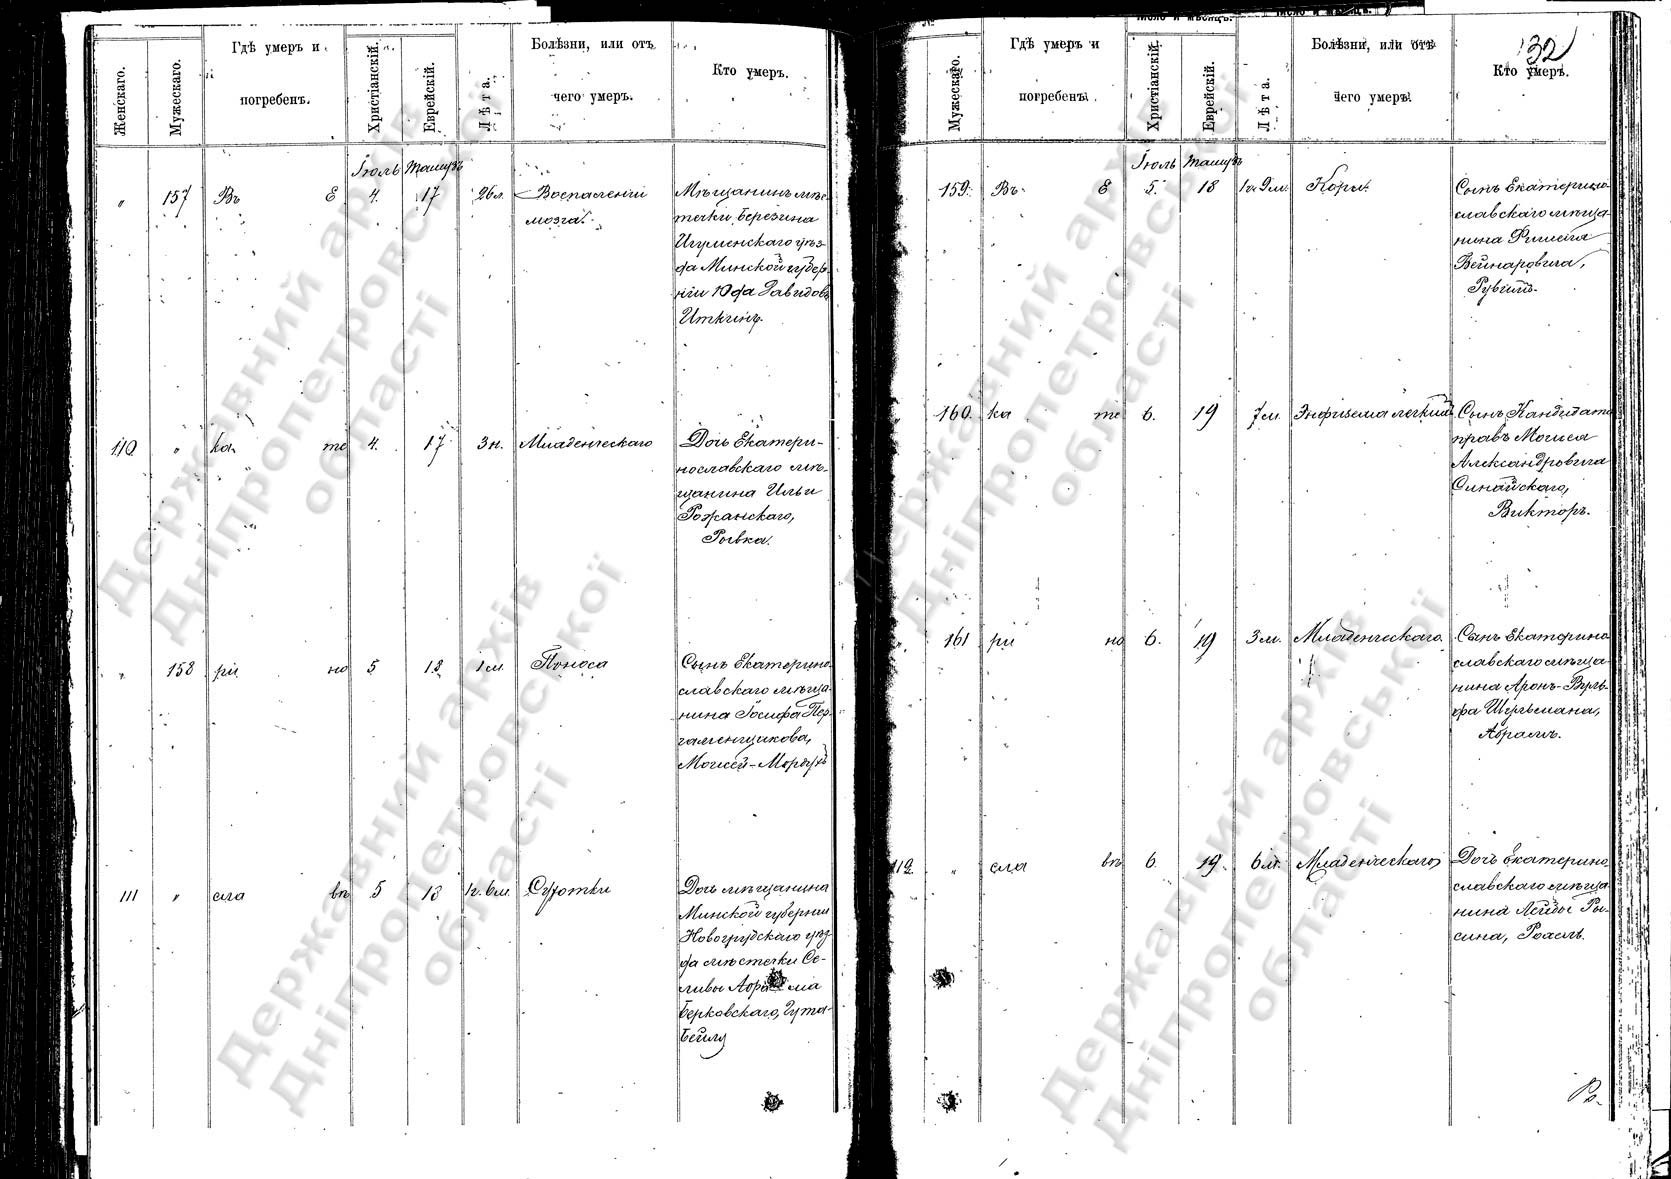 Женскаго.
Мужескаго.
Гдѣ умеръ и
погребенъ.
Христіанскій.
Еврейскій.
Лѣта.
Болѣзни, или отъ
чего умеръ.
Кто умеръ.
Іюль Тамузъ
" 157 Въ Е 4. 17 26 л. Воспаленіи
мозга.
Мѣщанинъ мѣс-
течки Березина
Игуменскаго уѣз-
да Минской губер-
ніи Юда Давидовъ
Иткинъ.
110 " ка те 4. 17 3 н. Младенческаго
Дочь Екатери-
нославскаго мѣ-
щанина Ильи
Рожанскаго,
Рывка.
" 158 ри но 5 18 1 м. Поноса
Сынъ Екатерино-
славскаго мѣща-
нина Іосифа Пер-
гаменщикова,
Моисей-Мордухъ
111 " сла вѣ 5 18 1 г. 6 м. Сухотки
Дочь мѣщанина
Минской губерніи
Новогрудскаго уѣз-
да мѣстечки Се-
ливы Абрама
Берковскаго, Гута-
Бейля
Мужескаго.
Гдѣ умеръ и
погребенъ.
Христіанскій.
Еврейскій.
Лѣта.
Болѣзни, или отъ
чего умеръ.
Кто умеръ.
32
Іюль Тамузъ
159. Въ Е 5. 18 1 г. 9 м. Кори.
Сынъ Екатерино-
славскаго мѣща-
нина
Вейнаровича,
Рувинъ.
160. ка те 6. 19 7 м. Энфизема легкихъ
Сынъ Кандидата
правъ Моисея
Александровича
Синайскаго,
Викторъ.
161 ри но 6. 19 3 м. Младенческаго.
Сынъ Екатерино-
славскаго мѣща-
нина Аронъ-Вуль-
фа Шульмана,
Абрамъ.
112. " сла вѣ 6. 19. 6 м. Младенческаго
Дочь Екатерино-
славскаго мѣща-
нина Лейбы Ры-
сина, Рохель.
Державний архів
Дніпропетровської
області
Державний архів
Дніпропетровської
області
Державний архів
Дніпропетровської
області
Державний архів
Дніпропетровської
області